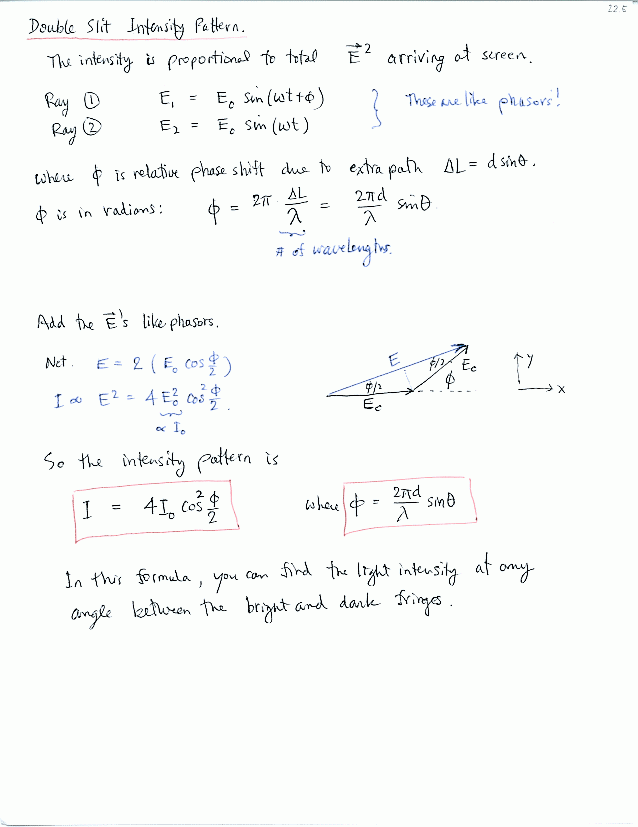 22.5
Double Slit Intensity Pattern.
The intensity is proportional to total E⃗² arriving at screen.
Ray ① E₁ = E₀ sin(ωt+ϕ) } These are like phasors!
Ray ② E₂ = E₀ sin(ωt)
where ϕ is relative phase shift due to extra path ΔL = d sinθ.
ϕ is in radians: ϕ = 2π · ΔL/λ = 2πd/λ sinθ
# of wavelengths.
Add the E⃗'s like phasors.
Net. E = 2 (E₀ cos ϕ/2)
I ∝ E² = 4 E₀² cos² ϕ/2.
∝ I₀
E ϕ/2 E₀ ϕ ϕ/2 E₀ y x
So the intensity pattern is
I = 4I₀ cos² ϕ/2 where ϕ = 2πd/λ sinθ
In this formula, you can find the light intensity at any
angle between the bright and dark fringes.